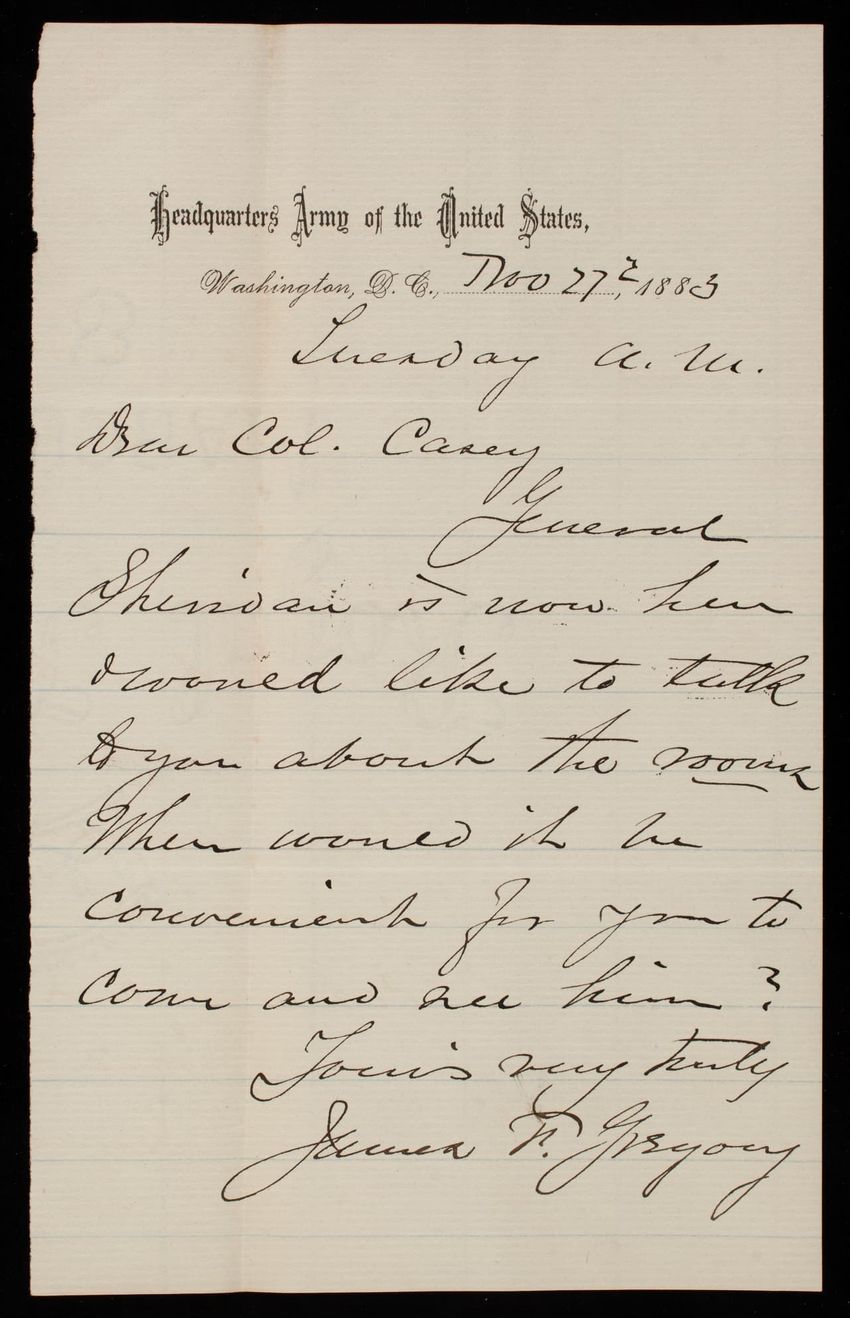 Headquarters Army of the United States,
Washington, D. C., Nov 27th, 1883
Tuesday A. M.
Dear Col. Casey
General
Sheridan is now here
& would like to talk
to you about the rooms
When would it be
convenient for you to
come and see him?
Yours very truly
James F. Gregory